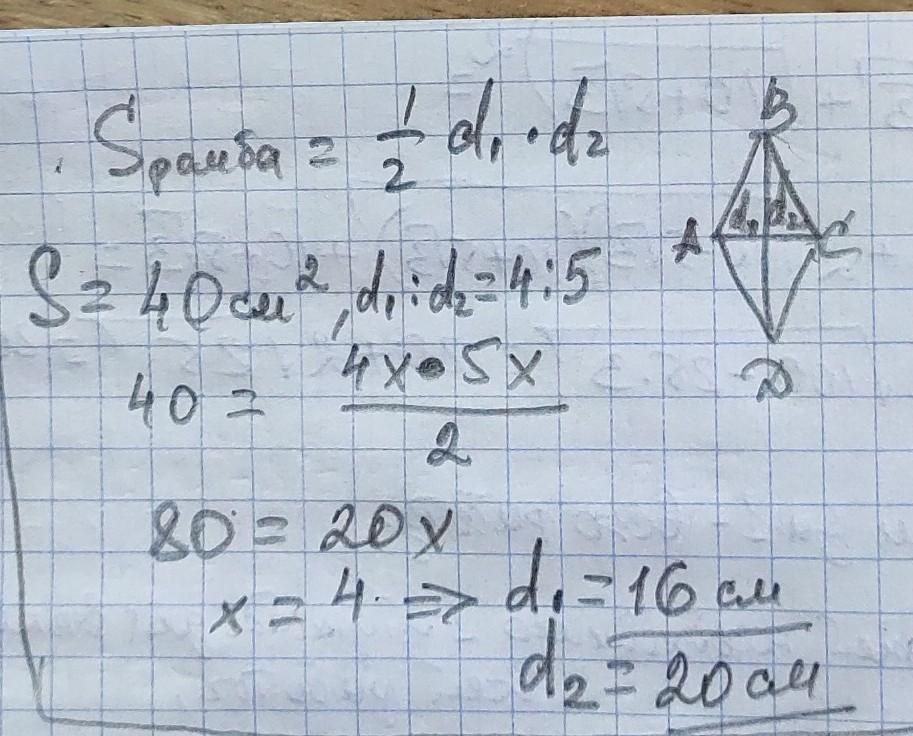 Sромба = 1/2 d₁ · d₂
B
d₁ d₂
A C
D
S = 40 см², d₁ : d₂ = 4 : 5
40 = (4x · 5x)/2
80 = 20x
x = 4 ⇒ d₁ = 16 см
d₂ = 20 см